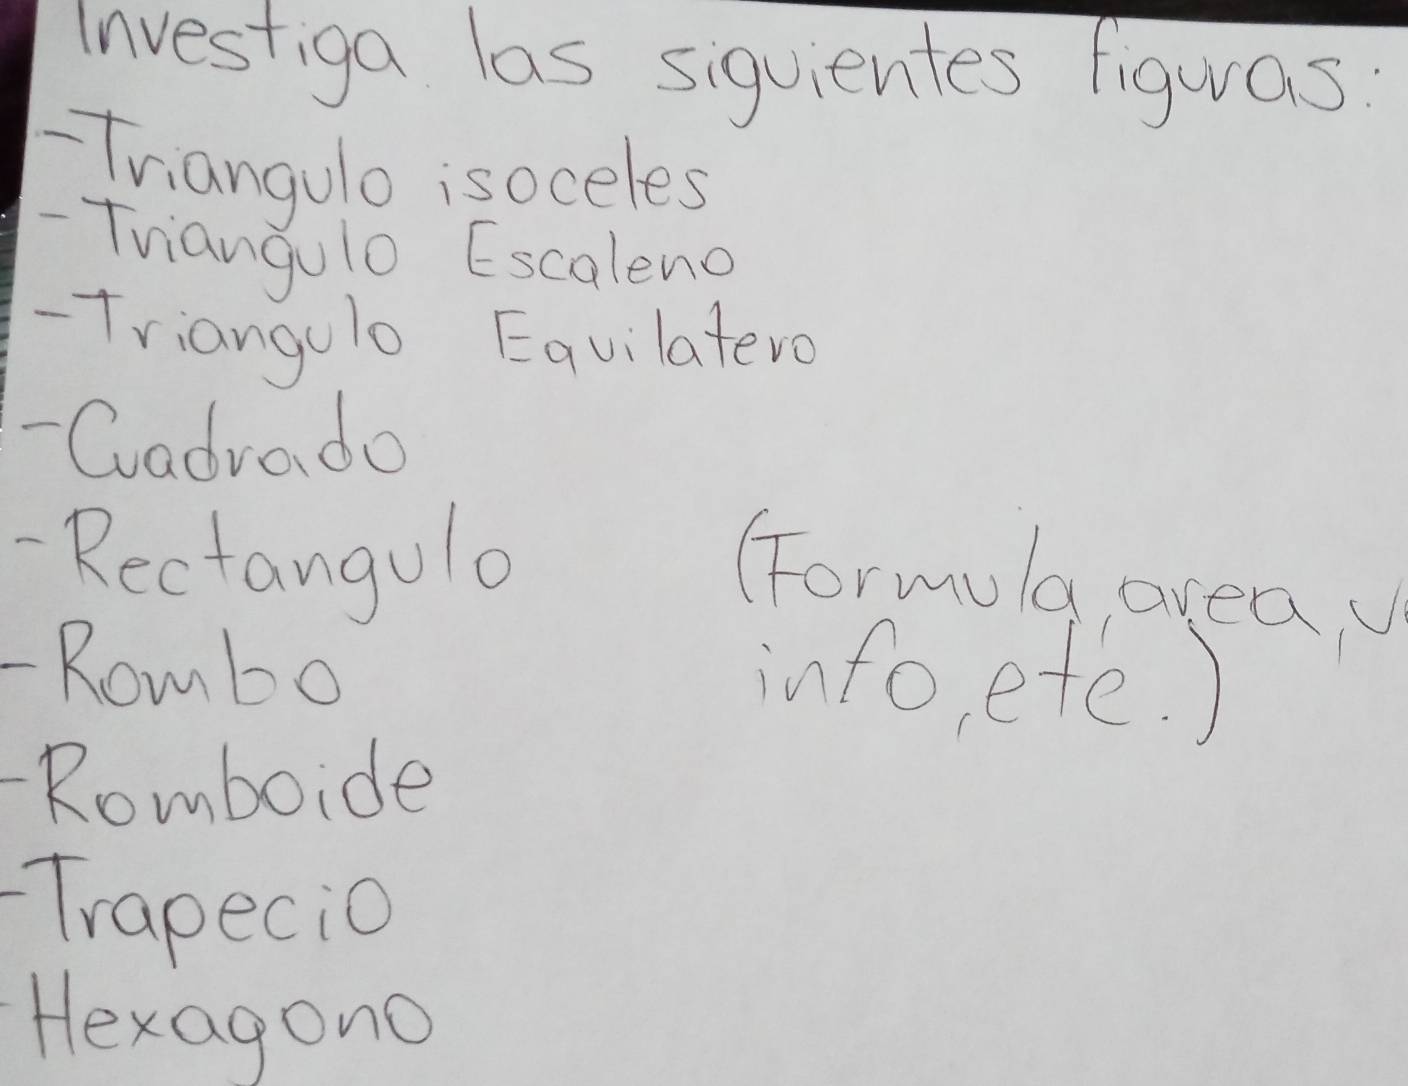 Investiga las siguientes figuras:
-Triangulo isoceles
-Triangulo Escaleno
-Triangulo Equilatero
-Cuadrado
-Rectangulo
(Formula, area,
-Rombo
info, etc.)
-Romboide
-Trapecio
-Hexagono